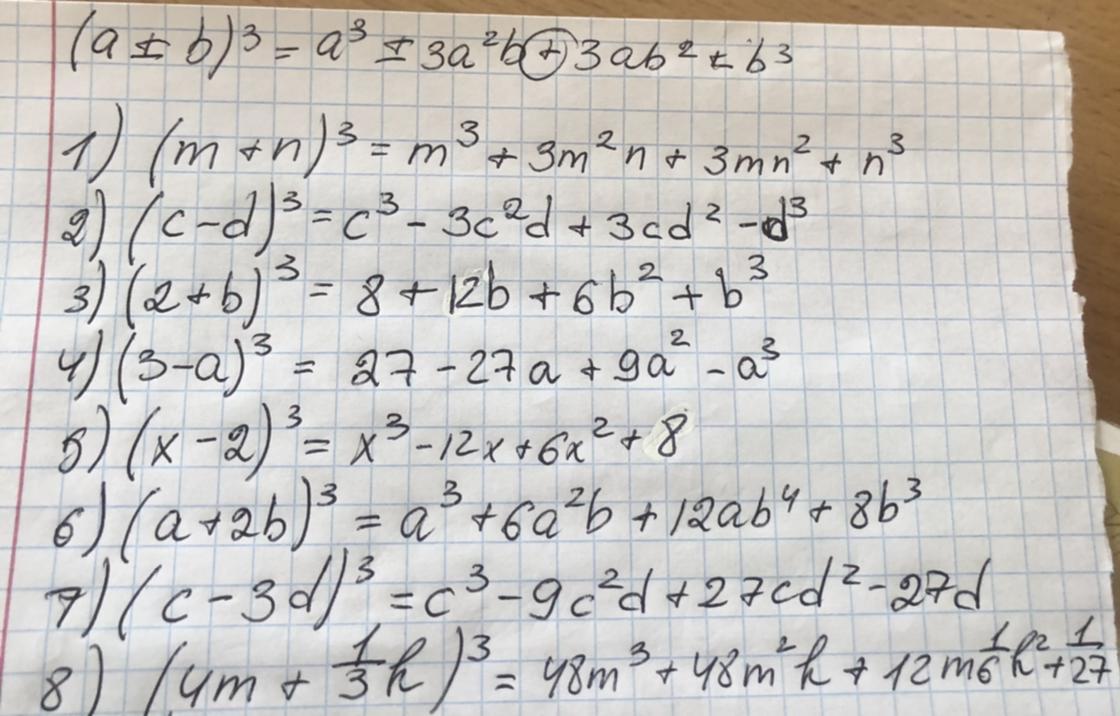 (a ± b)³ = a³ ± 3a²b + 3ab² ± b³
1) (m + n)³ = m³ + 3m²n + 3mn² + n³
2) (c - d)³ = c³ - 3c²d + 3cd² - d³
3) (2 + b)³ = 8 + 12b + 6b² + b³
4) (3 - a)³ = 27 - 27a + 9a² - a³
5) (x - 2)³ = x³ - 12x + 6x² + 8
6) (a + 2b)³ = a³ + 6a²b + 12ab⁴ + 8b³
7) (c - 3d)³ = c³ - 9c²d + 27cd² - 27d
8) (4m + 1/3 k)³ = 48m³ + 48m²k + 12m 1/6 k² + 1/27